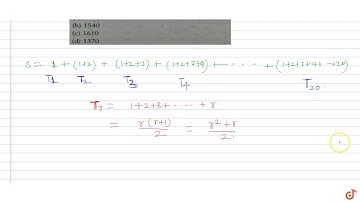 (b) 1540
(c) 1610
(d) 1370
S = 1 + (1+2) + (1+2+3) + (1+2+3+4) + ------ + (1+2+3+4--- +20)
T1 T2 T3 T4 T20.
Tr = 1+2+3+ ----- + r
= r(r+1)/2 = r²+r/2.